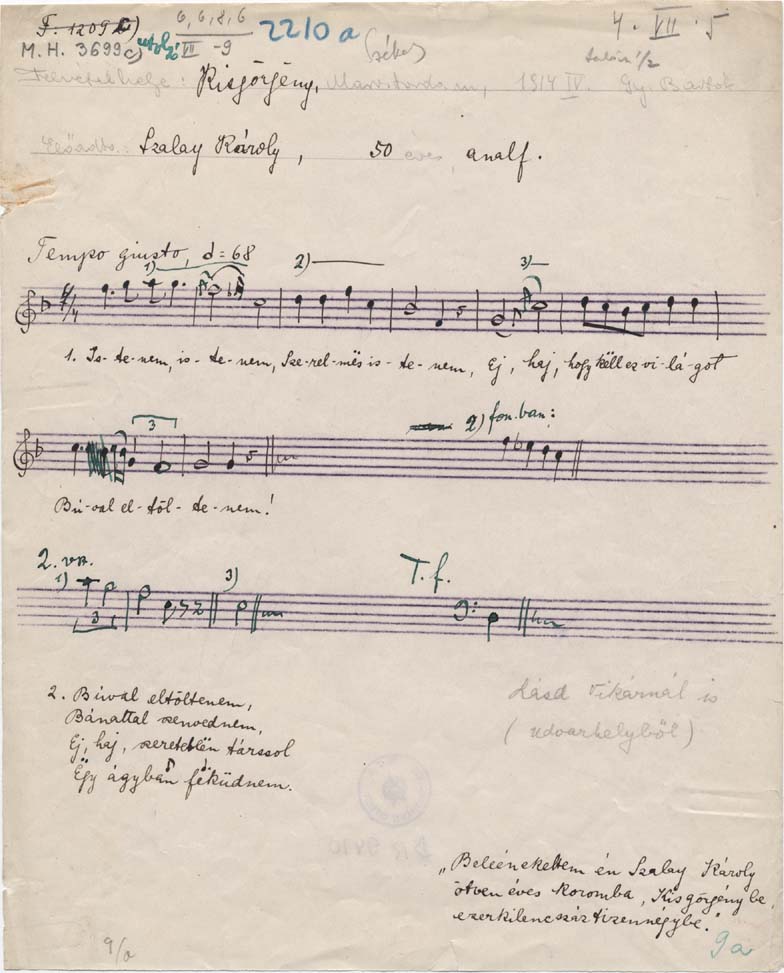 F. 1209 c)
6, 6, 8, 6
VII -9
2210 a
(székes)
4. VII. 5
M. H. 3699 c)
Felvétel helye: Kisgörgény, Marostorda m, 1914 IV. Gy. Bartók
Előadta: Szalay Károly, 50 éves, analf.
Tempo giusto, d = 68
1) 2) 3)
1. Is-te-nem, is-te-nem, Sze-rel-mës is-te-nem, Ej, haj, hogy këll ez vi-lá-got
3 2) fon.ban:
Bú-val el-töl-te-nem!
2. vsz. T. f.
1) 3)
3
2. Búval eltöltenem,
Bánattal szenvednem,
Ej, haj, szeretetlën társsol
Ëgy ágyban feküdnem.
Lásd Vikárnál is
(Udvarhelyből)
„Beleénekeltem én Szalay Károly
ötven éves koromba, Kisgörgénybe,
ezerkilencszáztizennégybe."
9/a
9a